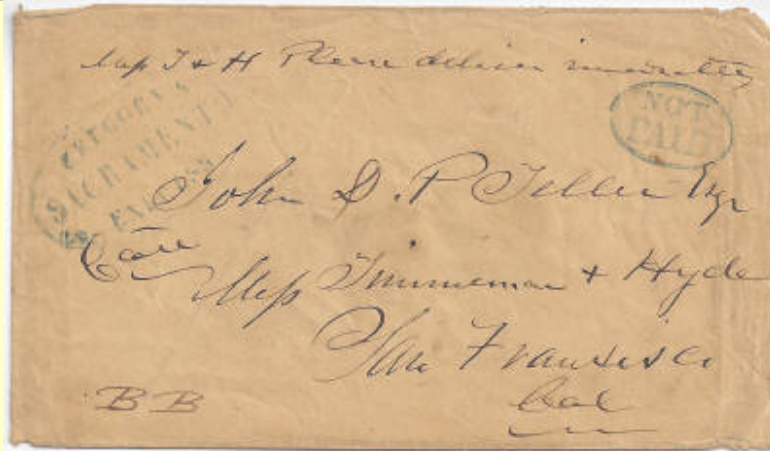 Mess T & H Please deliver immediately
GREGORY'S
SACRAMENTO
EXPRESS
NOT
PAID
John D. P. Teller Esqr
Care
Mess Timmerman & Hyde
San Francisco
Cal
BB